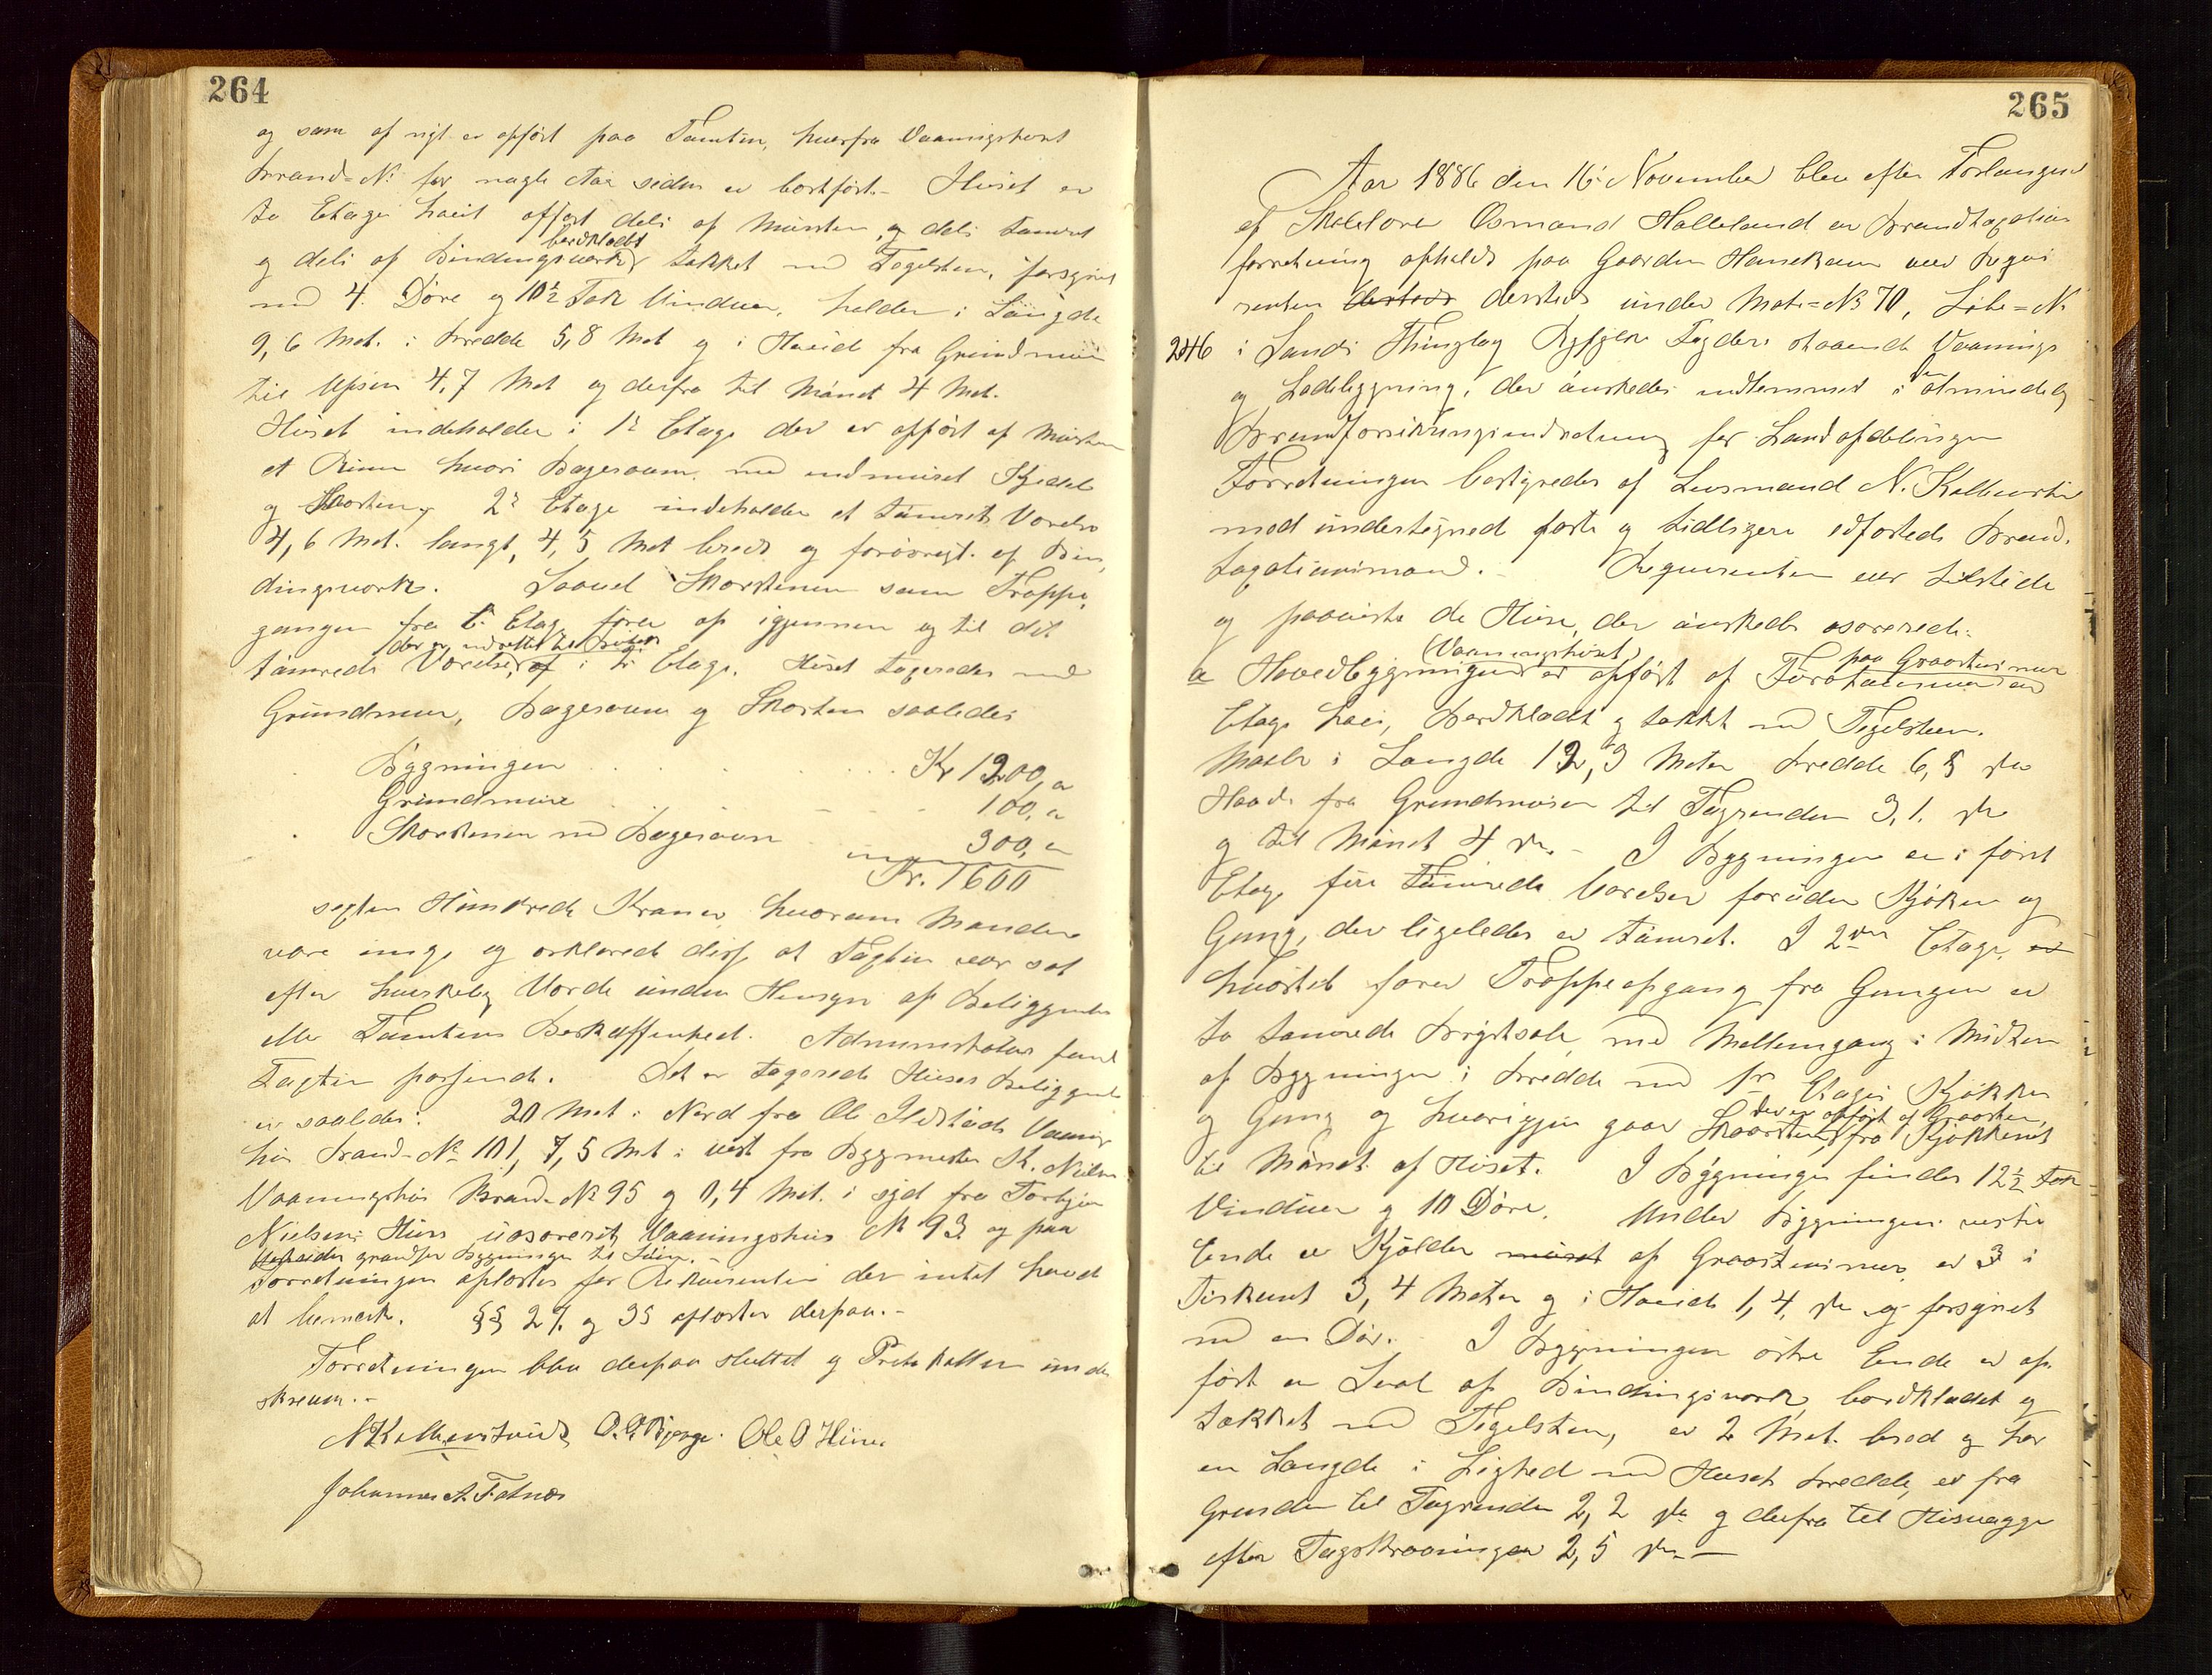 264
og som af nyt er opført paa Tomten, hvorfra Vaaningshuset
Brand-No for nogle Aar siden er bortført. Huset er
to Etager høit opført dels af Mursten, og dels tømret
bordklædt
og dels af Bindingsverk, tækket med Tegelsten, forsynet
med 4 Døre og 10½ Fak Vinduer, holder i Længde
9,6 Met. i Bredde 5,8 Met og i Høide fra Grundmur
til Ufsen 4,7 Met og derfra til Mønet 4 Met.
Huset indeholder i 1e Etage der er opført af Mursten
et Rum hvori Bagerovn med indmuret Kjedel
og Skorsten. 2e Etage indeholder et tømret Værelse
4,6 Met. langt, 4,5 Met bredt og forøvrigt af Bin,
dingsverk. Saavel Skorstenen som Trappe,
gangen fra 1e Etage fører op igjennem og til det
der er indrettet til
tømrede Værelse, af i 1e Etage. Huset taxeredes med
Grundmur, Bagerovn og Skorsten saaledes
Bygningen . . . . Kr 1200, "
Grundmure . . . . 100, "
Skorstenen med Bagerovn . . 300, "
Kr. 1600
sexten Hundrede Kroner, hvorom Mændene
vare enige og erklærede disse at Taxten var sat
efter huuskelig Værdi uden Hensyn af Beliggenhed
eller Tomtens Beskaffenhed. Administrator fandt
Taxten passende. Det er taxerede Huses Beliggenhed
er saaledes: 20 Met i Nord fra Ole Ildstads Vaanings
hus Brand-No 101, 7,5 Met i vest fra Bygmester K. Nielsens
Vaaningshus Brand-No 95 og 0,4 Met. i syd fra Torbjørn
Nielsens Huus uasoreret Vaaningshus No 93 og paa
Østsiden grændser Bygningen til Søen. -
Forretningen oplæstes for Rekvirenten der intet havde
at bemærke. §§ 27 og 35 oplæstes derpaa. -
Forretningen blev derpaa sluttet og Protokollen under
skreven. -
N Kolbenstvedt O. G. Bjerge. Ole O Hiim.
Johannes A. Fatnes
265
Aar 1886 den 16e November blev efter Forlangende
af Skolelærer Osmund Halleland en Brandtaxations
forretning afholdt paa Gaarden Hanekam over Requi
renten dersteds dersteds under Matr=No 70, Løbe=No
246 i Sands Thinglag Ryfylke Fogderi staaende Vaanings
den
og Ladebygning, der ønskedes indlemmet i almindelig
Brandforsikringsindretning for Landafdelingen
Forretningen bestyredes af Lensmand N. Kolbenstvedt
med undertegnede faste og tidligere edfæstede Brand,
taxationsmænd. - Requirenten var tilstede
og paaviste de Huse, der ønskedes assurerede:
(Vaaningshuset) paa Graastensmur
a Hovedbygningen er opført af Furutømmer en
Etage høi, Bordklædt og tækket med Tegelsten.
Maaler i Længde 12,3 Meter Bredde 6,5 do
Høide fra Grundmuren til Tagrenden 3,1. do
og til Mønet 4 do. - I Bygningen er i først
Etage fire tømrede Værelser foruden Kjøken og
Gang, der ligeledes er tømret. I 2den Etage, er
hvortil fører Trappeopgang fra Gangen er
to tømrede Brystsale med Mellemgang i Midten
af Bygningen i Bredde med 1e Etages Kjøkken
der er opført af Graasten,
og Gang og hvorigjen gaar Skorsten, fra Kjøkkenet
til Mønet af Huset. I Bygningen findes 12½ Fak
Vinduer og 10 Døre. Under Bygningens vestre
Ende er Kjælder muret af Graastensmur, er 3 i
Firkant 3,4 Meter og i Høide 1,4 do og forsynet
med en Dør. I Bygningens østre Ende er op
ført en Sval af Bindingsværk, bordklædt og
tækket med Tegelsten, er 2 Met. bred og har
en Længde i Lighed med Husets Bredde, er fra
Grunden til Tagrenden 2,2 do og derfra til Husvægge
efter Tagskraaningen 2,5 do. —